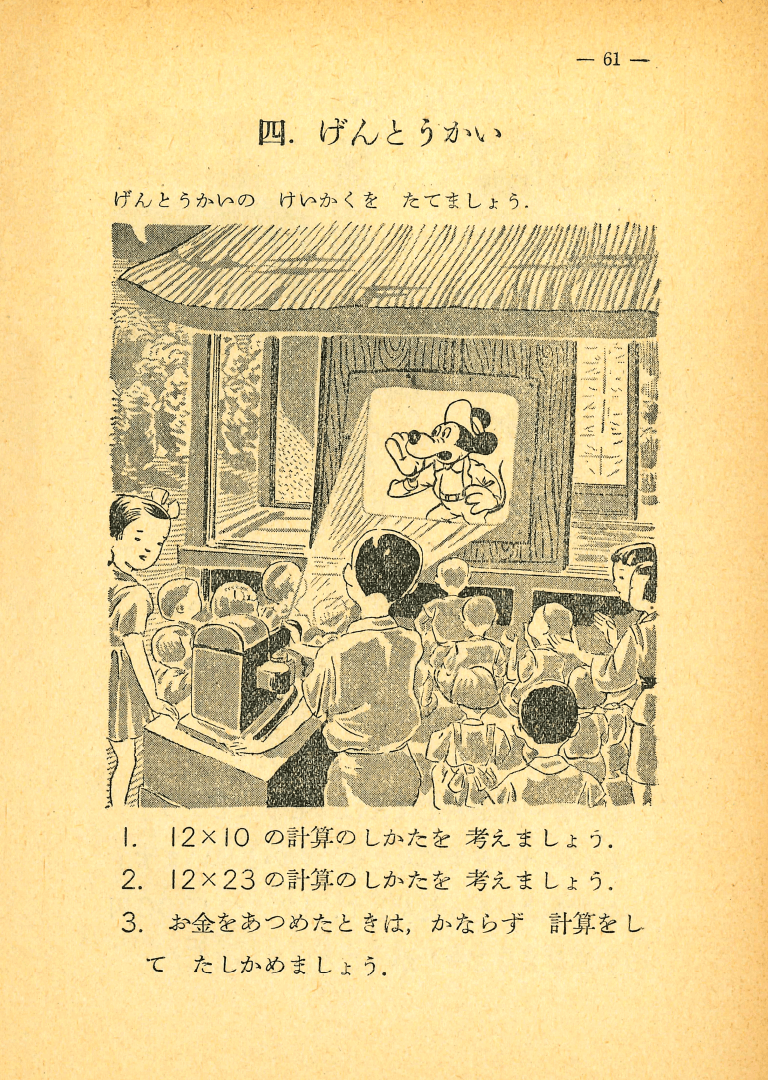 — 61 —
四. げんとうかい
げんとうかいの けいかくを たてましょう.
1. 12×10 の計算のしかたを 考えましょう.
2. 12×23 の計算のしかたを 考えましょう.
3. お金をあつめたときは, かならず 計算をし
て たしかめましょう.